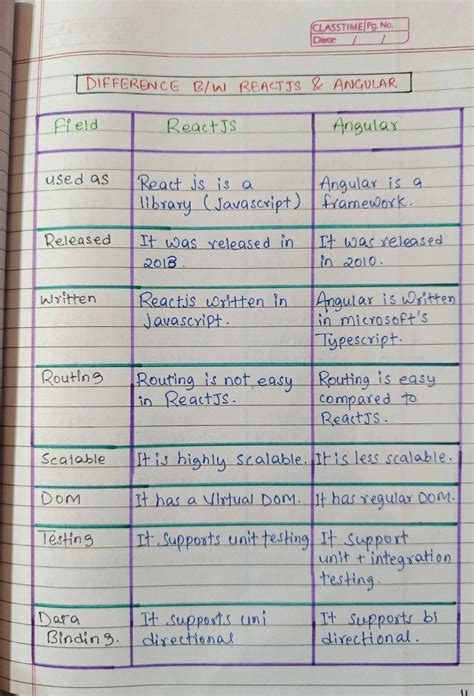 CLASSTIME Pg. No.
Date / /
DIFFERENCE B/W REACTJS & ANGULAR
Field ReactJS Angular
used as React js is a Angular is a
library (Javascript) framework.
Released It was released in It was released
2013. in 2010.
Written Reactjs written in Angular is Written
javascript. in microsoft's
Typescript.
Routing Routing is not easy Routing is easy
in ReactJS. compared to
ReactJS.
Scalable It is highly scalable. It is less scalable.
DOM It has a Virtual DOM. It has regular DOM.
Testing It supports unit testing It support
unit + integration
testing.
Data It supports uni It supports bi
Binding. directional directional.